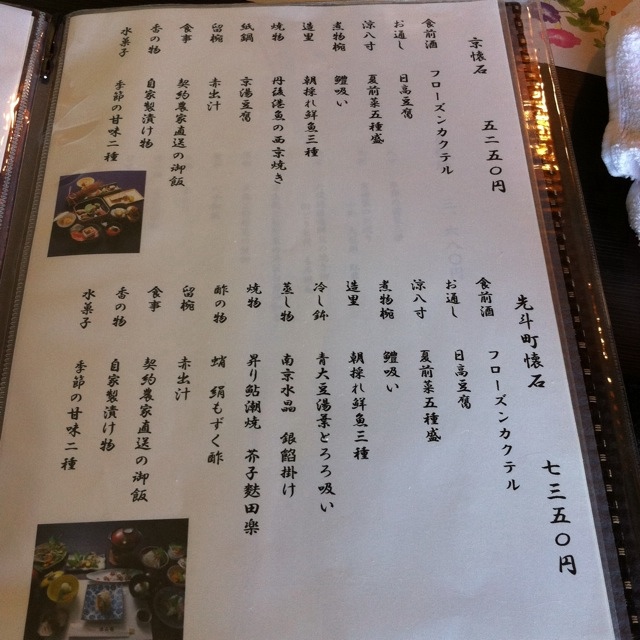 京懐石 五二五〇円
食前酒 フローズンカクテル
お通し 日高豆腐
涼八寸 夏前菜五種盛
煮物椀 鱧吸い
造里 朝採れ鮮魚三種
焼物 丹後港魚の西京焼き
紙鍋 京湯豆腐
留椀 赤出汁
食事 契約農家直送の御飯
香の物 自家製漬け物
水菓子 季節の甘味二種
先斗町懐石 七三五〇円
食前酒 フローズンカクテル
お通し 日高豆腐
涼八寸 夏前菜五種盛
煮物椀 鱧吸い
造里 朝採れ鮮魚三種
冷し鉢 青大豆湯葉とろろ吸い
蒸し物 南京水晶 銀餡掛け
焼物 昇り鮎潮焼 芥子麩田楽
酢の物 蛸 絹もずく酢
留椀 赤出汁
食事 契約農家直送の御飯
香の物 自家製漬け物
水菓子 季節の甘味二種